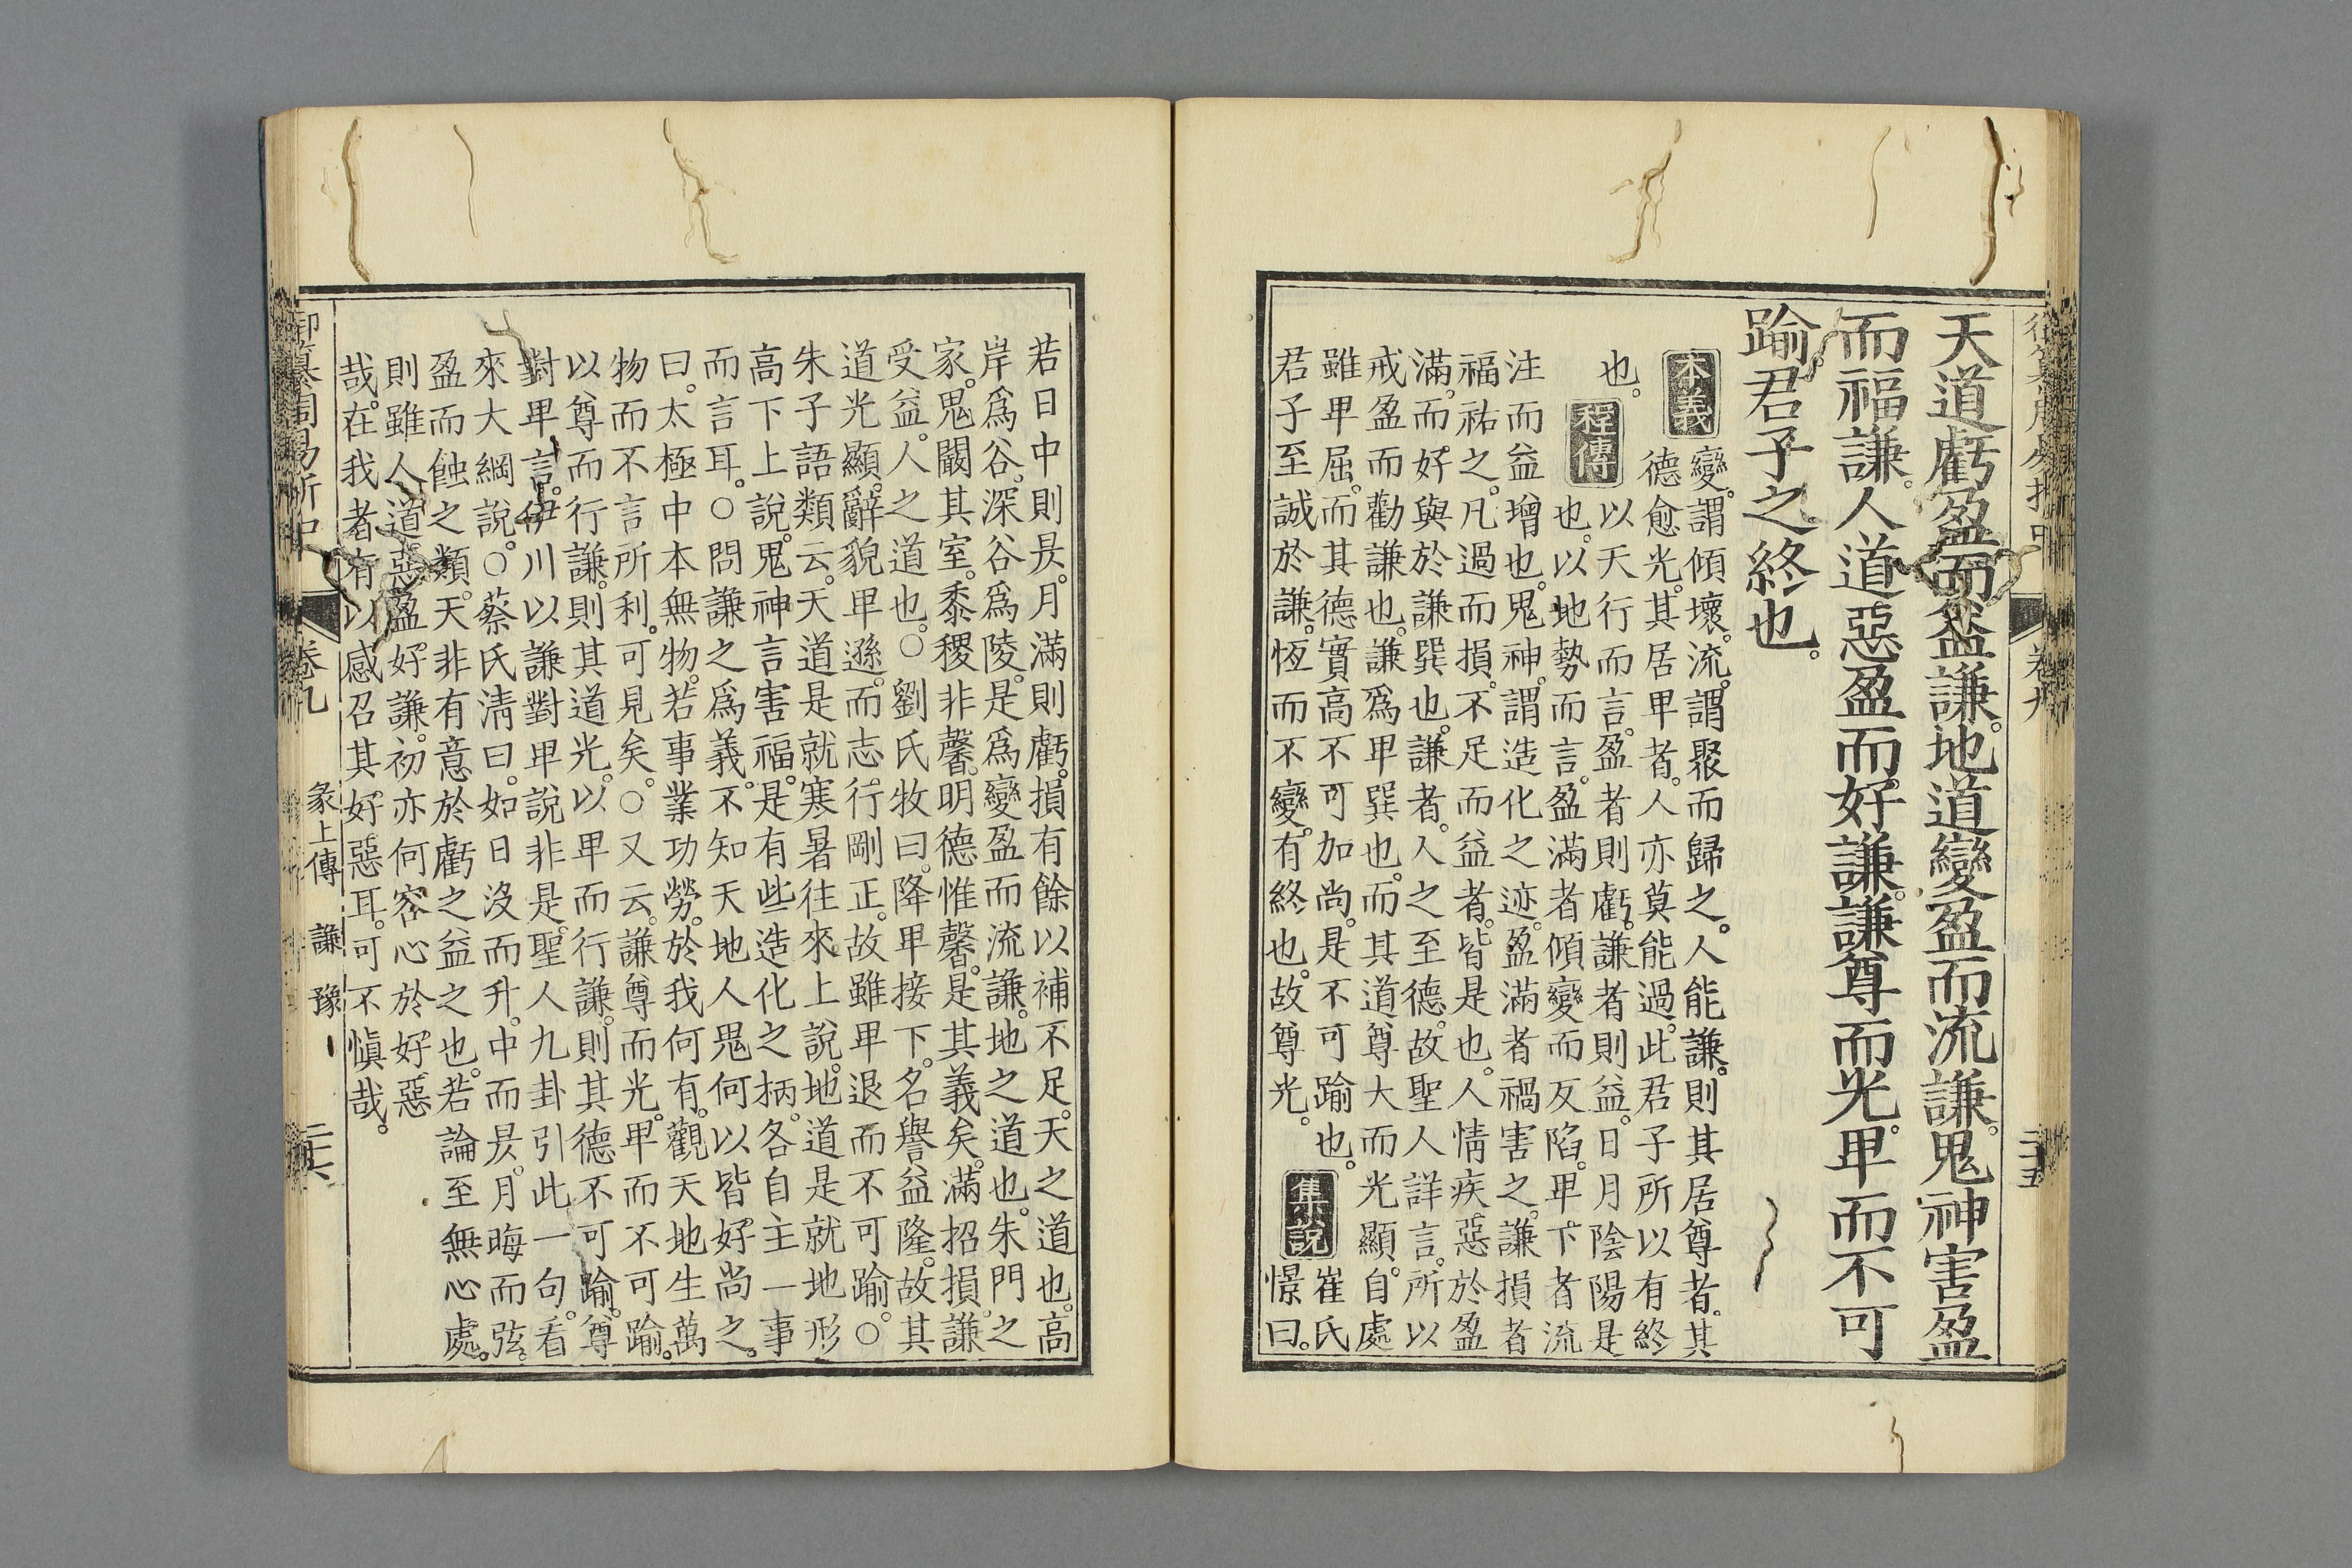 天道虧盈而益謙。地道變盈而流謙。鬼神害盈
而福謙。人道惡盈而好謙。謙尊而光。卑而不可
踰。君子之終也。
本義
變。謂傾壞。流。謂聚而歸之。人能謙。則其居尊者。其
德愈光。其居卑者。人亦莫能過。此君子所以有終
也。
程傳
以天行而言。盈者則虧。謙者則益。日月陰陽是
也。以地勢而言。盈滿者傾變而反陷。卑下者流
注而益增也。鬼神。謂造化之迹。盈滿者禍害之。謙損者
福祐之。凡過而損。不足而益者。皆是也。人情疾惡於盈
滿。而好與於謙巽也。謙者。人之至德。故聖人詳言。所以
戒盈而勸謙也。謙爲卑巽也。而其道尊大而光顯。自處
雖卑屈。而其德實高不可加尚。是不可踰也。
君子至誠於謙。恆而不變。有終也。故尊光。
集說
崔氏
憬曰。
卷九
二十五
若日中則昃。月滿則虧。損有餘以補不足。天之道也。高
岸爲谷。深谷爲陵。是爲變盈而流謙。地之道也。朱門之
家。鬼闞其室。黍稷非馨。明德惟馨。是其義矣。滿招損。謙
受益。人之道也。○劉氏牧曰。降卑接下。名譽益隆。故其
道光顯。辭貌卑遜。而志行剛正。故雖卑退而不可踰。○
朱子語類云。天道是就寒暑往來上說。地道是就地形
高下上說。鬼神言害福。是有些造化之柄。各自主一事
而言耳。○問謙之爲義。不知天地人鬼何以皆好尚之。
曰。太極中本無物。若事業功勞。於我何有。觀天地生萬
物而不言所利。可見矣。○又云。謙尊而光。卑而不可踰。
以尊而行謙。則其道光。以卑而行謙。則其德不可踰。尊
對卑言。伊川以謙對卑說非是。聖人九卦引此一句。看
來大綱說。○蔡氏淸曰。如日沒而升。中而昃。月晦而弦。
盈而蝕之類。天非有意於虧之益之也。若論至無心處。
則雖人道惡盈。好謙。初亦何容心於好惡
哉。在我者有以感召其好惡耳。可不愼哉。
御纂周易折中
卷九
彖上傳 謙 豫
二十六